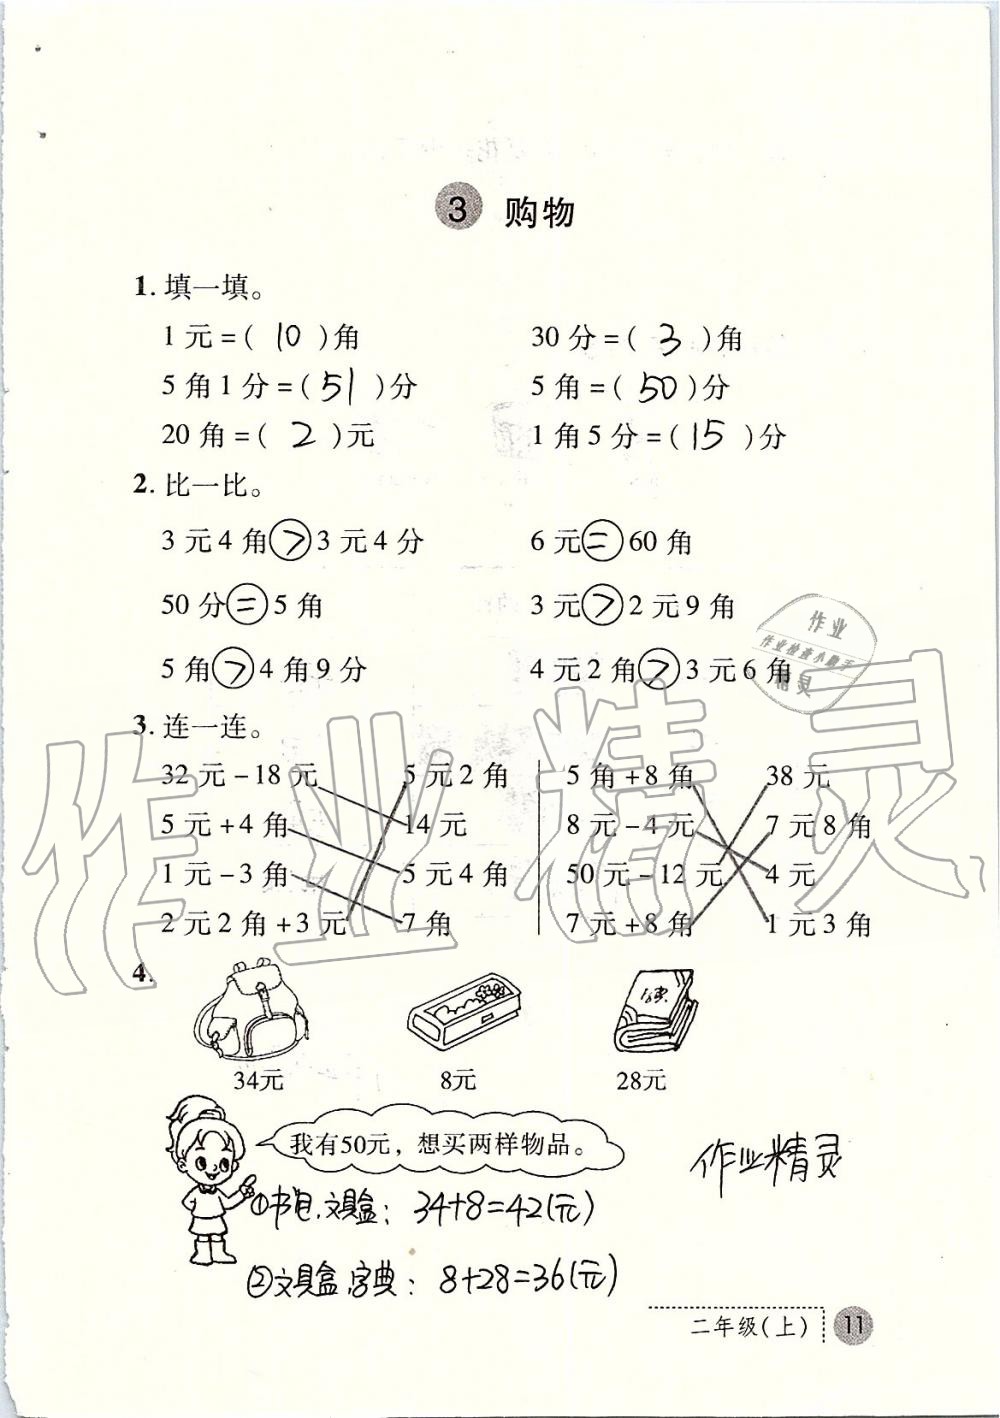 3 购物
1. 填一填。
1元=( 10 )角 30分=( 3 )角
5角1分=( 51 )分 5角=( 50 )分
20角=( 2 )元 1角5分=( 15 )分
2. 比一比。
3元4角>3元4分 6元=60角
50分=5角 3元>2元9角
5角>4角9分 4元2角>3元6角
作业
作业检查小助手
精灵
3. 连一连。
32元-18元 5元2角 5角+8角 38元
5元+4角 14元 8元-4元 7元8角
1元-3角 5元4角 50元-12元 4元
2元2角+3元 7角 7元+8角 1元3角
作业精灵
4.
34元 8元 28元
我有50元，想买两样物品。
作业精灵
①书包、文具盒：34+8=42(元)
②文具盒、字典：8+28=36(元)
二年级(上) 11